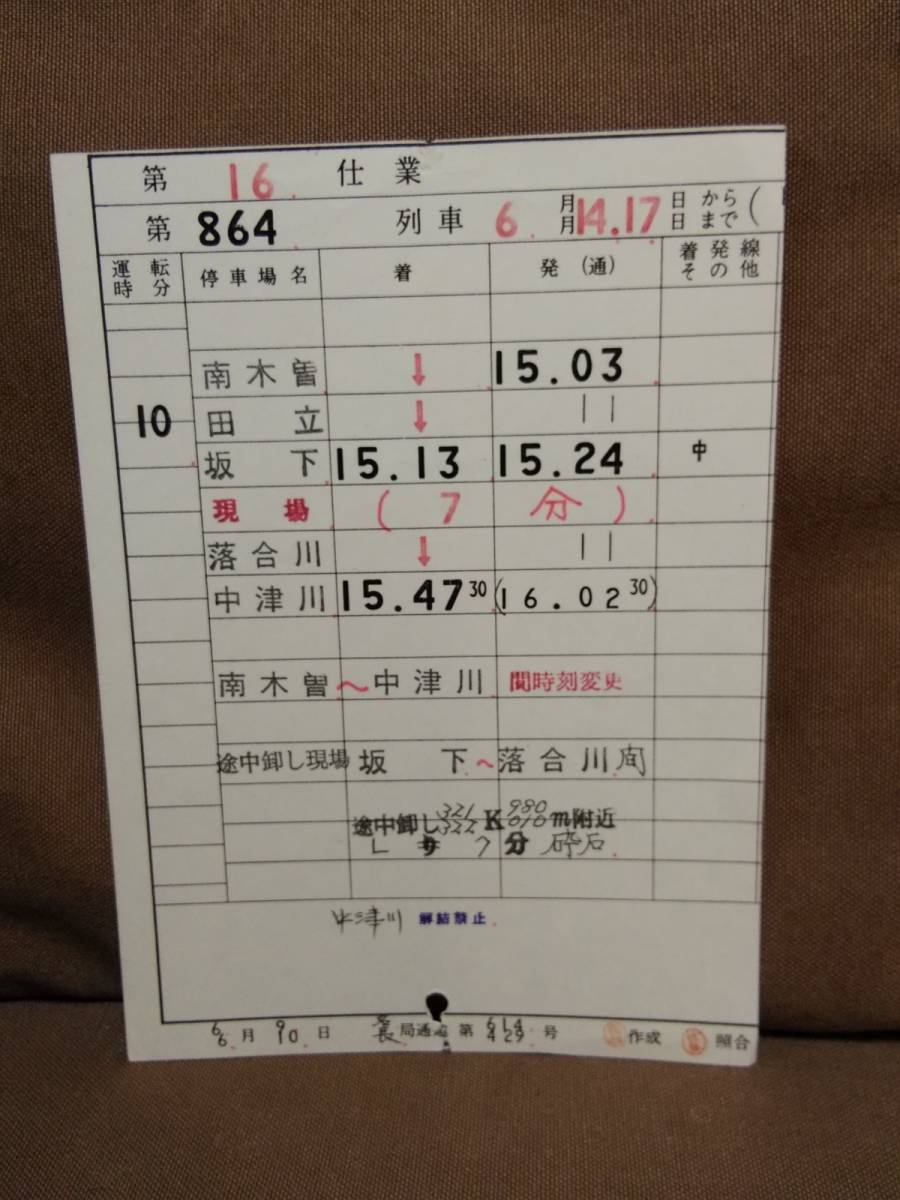 第 16 仕業
第 864 列車 6 月月 14.17 日から日まで (
運転時分 停車場名 着 発(通) 着発線その他
南木曽 ↓ 15.03
10 田立 ↓ ||
坂下 15.13 15.24 中
現場 ( 7 分 )
落合川 ↓ ||
中津川 15.47 30 (16.02 30)
南木曽~中津川 間時刻変更
途中卸し現場 坂下~落合川間
途中卸し 321 322 K 980 010 m附近
7分 砕石
中津川 解結禁止
6 6 月 9 10 日 長局通達第 614 429 号 作成 照合